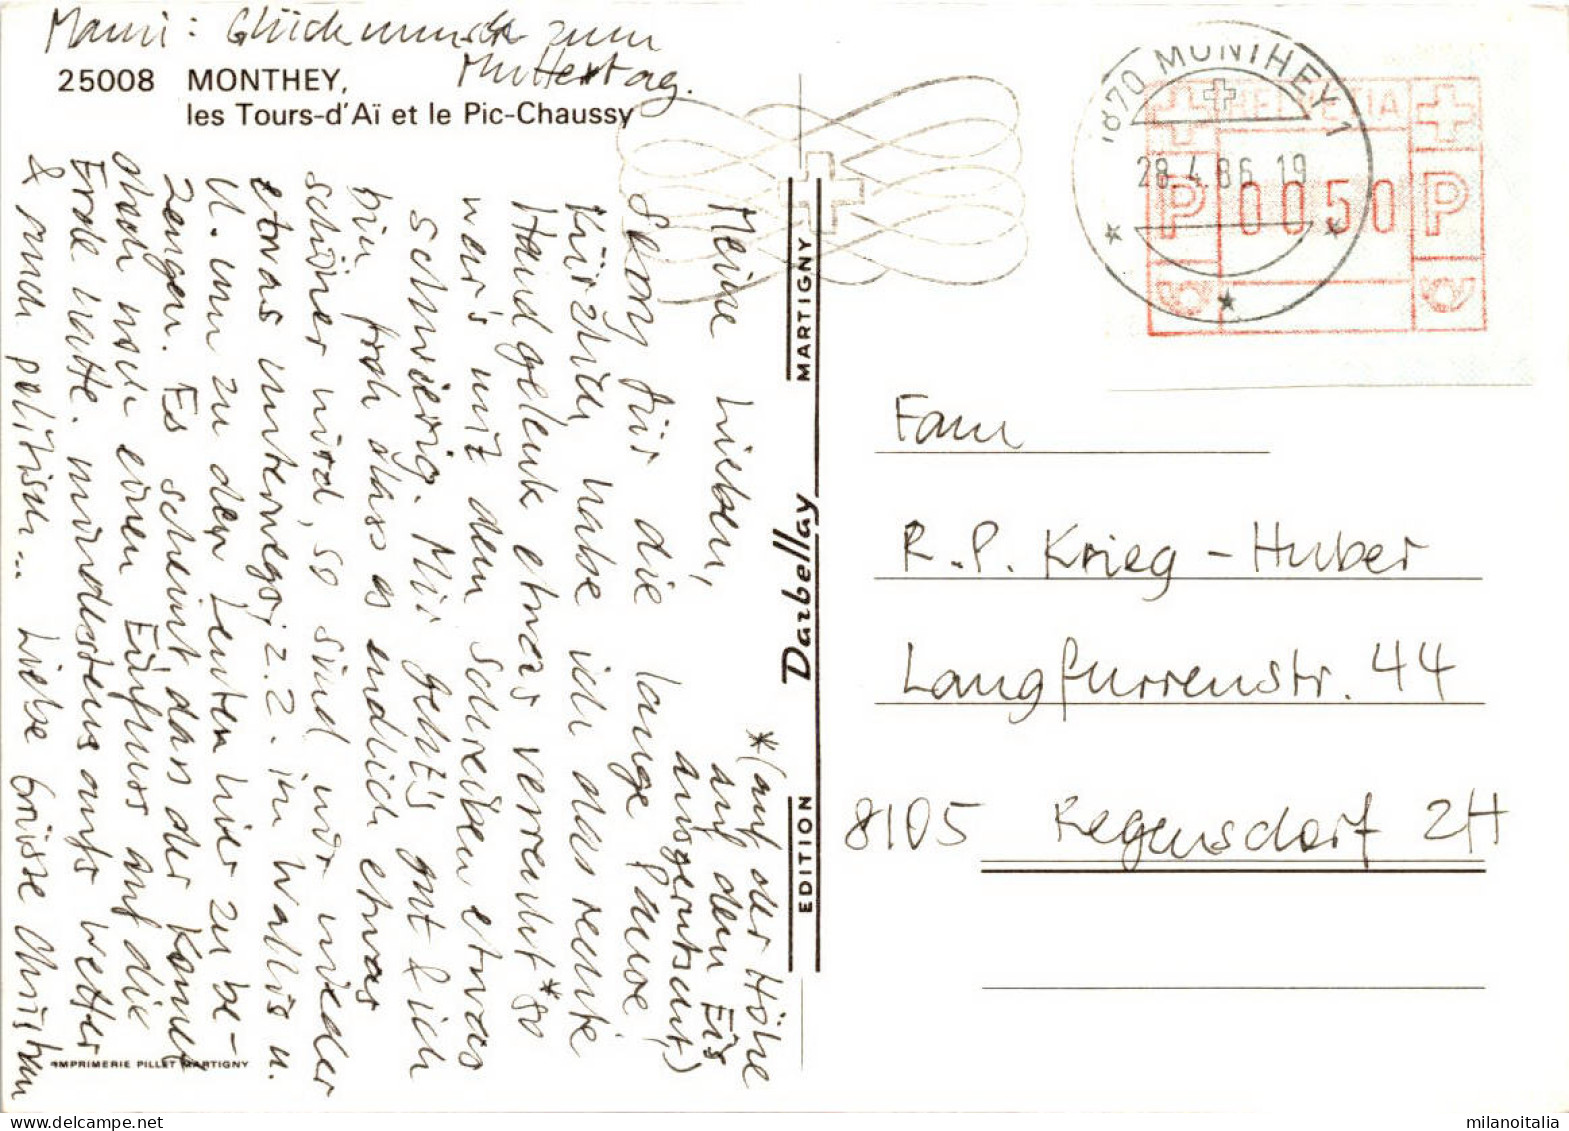 Mami: Glückwunsch zum
Muttertag.
25008 MONTHEY,
les Tours-d'Aï et le Pic-Chaussy
Meine Lieben,
Sorry für die lange Pause
Kürzlich habe ich das rechte
Handgelenk etwas verrenkt* so
war's mit dem Schreiben etwas
schwierig. Mir geht's gut & ich
bin froh dass es endlich etwas
schöner wird, so sind wir wieder
etwas unterwegs, z.Z. im Wallis u.
U. um zu den Leuten hier zu be-
zeugen. Es scheint dass der Komet
doch noch einen Einfluss auf die
Erde hatte. mindestens aufs Wetter
& auch politisch... Liebe Grüsse
*(auf der Höhe
auf dem Eis
ausgerutscht)
EDITION Darbellay MARTIGNY
IMPRIMERIE PILLET MARTIGNY
1870 MONTHEY 1
28.4.86.19
HELVETIA
P 0050 P
Fam
R.P. Krieg-Huber
Langfurrenstr. 44
8105 Regensdorf ZH
milanoitalia